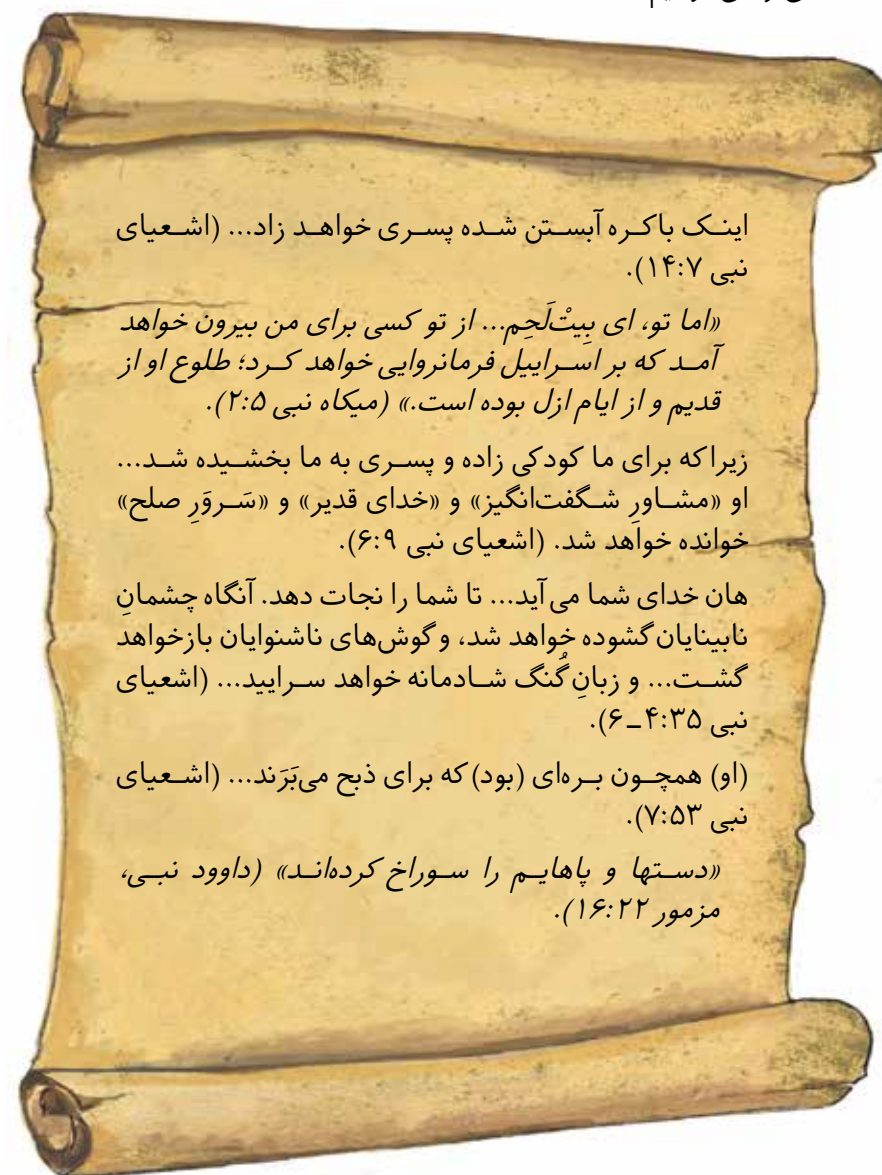 اینک باکره آبستن شده پسری خواهد زاد... (اشعیای
نبی ۱۴:۷).
«اما تو، ای بِیتْ‌لَحِم... از تو کسی برای من بیرون خواهد
آمد که بر اسراییل فرمانروایی خواهد کرد؛ طلوع او از
قدیم و از ایام ازل بوده است.» (میکاه نبی ۲:۵).
زیرا که برای ما کودکی زاده و پسری به ما بخشیده شد...
او «مشاورِ شگفت‌انگیز» و «خدای قدیر» و «سَروَرِ صلح»
خوانده خواهد شد. (اشعیای نبی ۶:۹).
هان خدای شما می‌آید... تا شما را نجات دهد. آنگاه چشمانِ
نابینایان گشوده خواهد شد، و گوش‌های ناشنوایان باز خواهد
گشت... و زبانِ گُنگ شادمانه خواهد سرایید... (اشعیای
نبی ۴:۳۵ـ۶).
(او) همچون بره‌ای (بود) که برای ذبح می‌بَرَند... (اشعیای
نبی ۷:۵۳).
«دستها و پاهایم را سوراخ کرده‌اند» (داوود نبی،
مزمور ۱۶:۲۲).